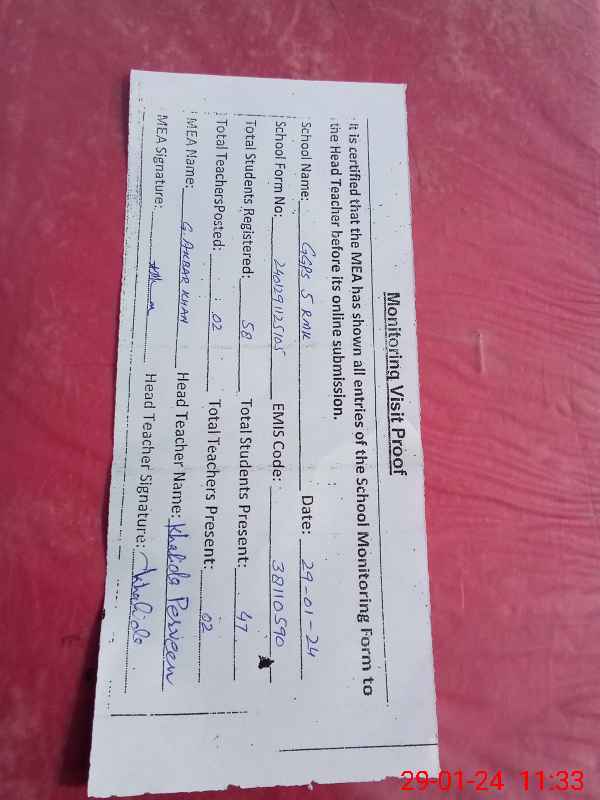 Monitoring Visit Proof
It is certified that the MEA has shown all entries of the School Monitoring Form to
the Head Teacher before its online submission.
School Name: GGPS 5 RMK Date: 29-01-24
School Form No: 2401291125105 EMIS Code: 38110590
Total Students Registered: 58 Total Students Present: 47
Total TeachersPosted: 02 Total Teachers Present: 02
MEA Name: G. AKBAR KHAN Head Teacher Name: Khalida Perveen
MEA Signature: Head Teacher Signature: Khalida
29-01-24 11:33